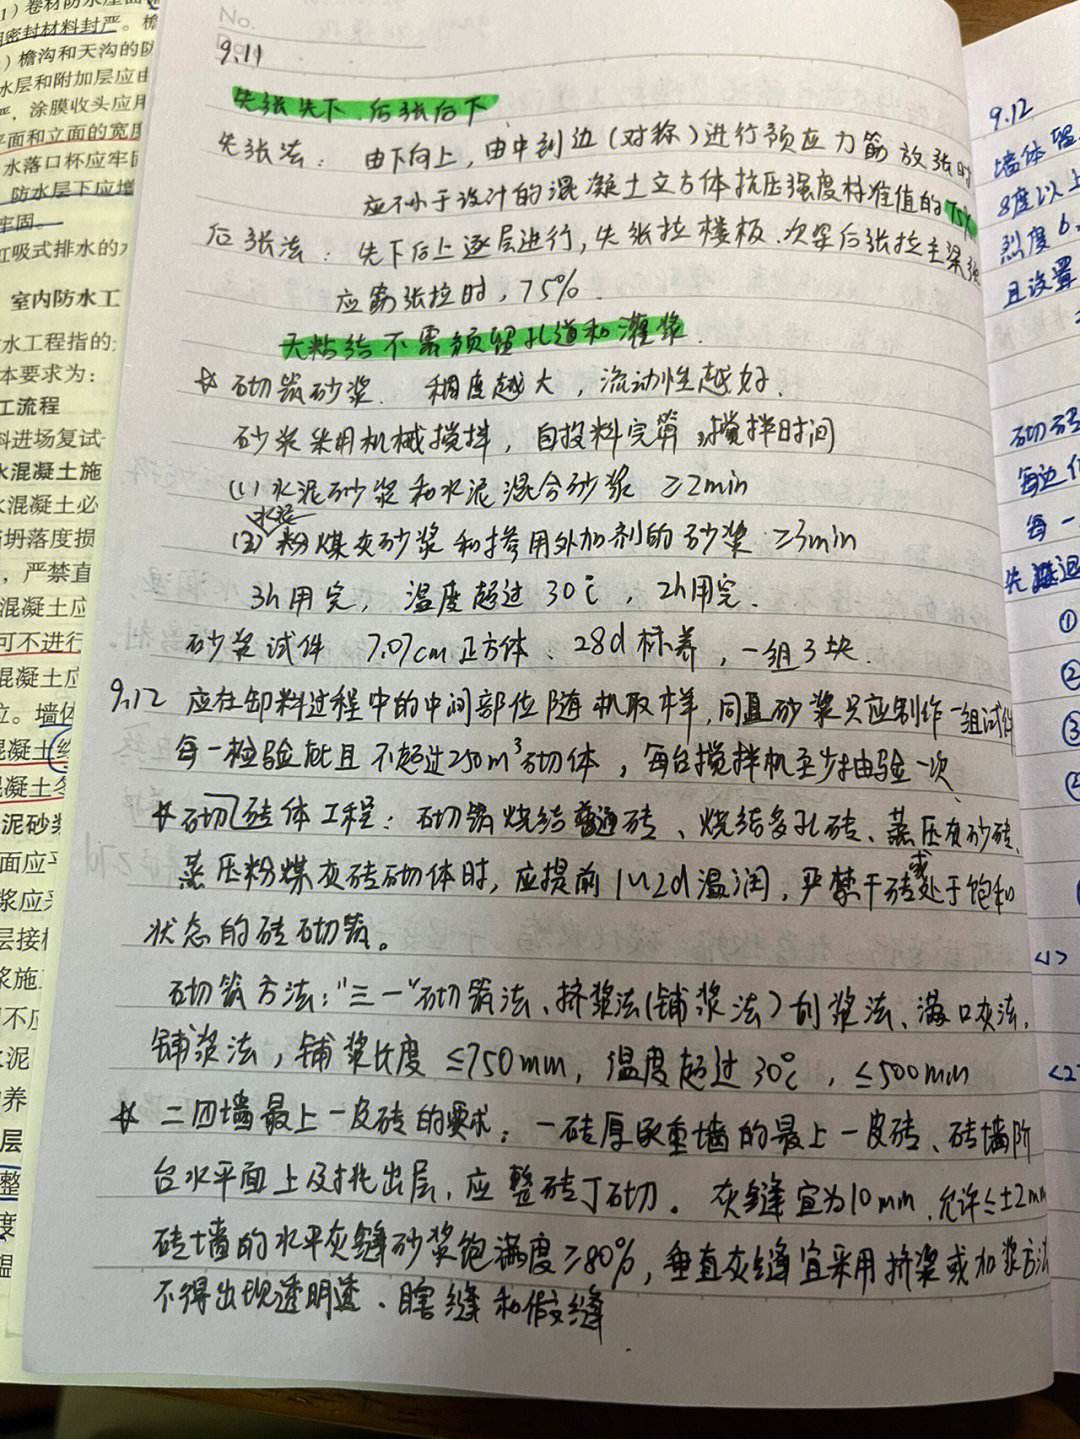 1）卷材防水屋面
密封材料封严。檐
）檐沟和天沟的防
水层和附加层应由
严，涂膜收头应用
平面和立面的宽度
水落口杯应牢固
防水层下应增
牢固。
虹吸式排水的
室内防水工
水工程指的
本要求为：
工流程
料进场复试
水混凝土施
混凝土必
坍落度损
，严禁直
混凝土应
可不进行
混凝土应
位。墙体
混凝土
混凝土
泥砂浆
面应平
浆应
层接
浆施
不应
水泥
养
层
整
度
温
No.
9.11
先张先下，后张后下
先张法：由下向上，由中到边（对称）进行预应力筋放张时
应不小于设计的混凝土立方体抗压强度标准值的75%
后张法：先下后上逐层进行，先张拉楼板、次梁后张拉主梁
应筋张拉时，75%.
无粘结不需预留孔道和灌浆.
☆砌筑砂浆. 稠度越大，流动性越好.
砂浆采用机械搅拌，自投料完算，搅拌时间
(1)水泥砂浆和水泥混合砂浆 ≥2min
(2)水泥粉煤灰砂浆和掺用外加剂的砂浆 ≥3min
3h用完，温度超过30℃，2h用完.
砂浆试件 7.07cm正方体、28d标养，一组3块.
9.12 应在卸料过程中的中间部位随机取样，同盘砂浆只应制作一组试件
每一检验批且不超过250m³砌体，每台搅拌机至少抽验一次
☆砌砖体工程：砌筑烧结普通砖、烧结多孔砖、蒸压灰砂砖、
蒸压粉煤灰砖砌体时，应提前1~2d湿润，严禁干砖或处于饱和
状态的砖砌筑。
砌筑方法："三一"砌筑法、挤浆法(铺浆法）刮浆法、满口灰法.
铺浆法，铺浆长度≤750mm，温度超过30℃，≤500mm
☆二四墙最上一皮砖的要求：一砖厚承重墙的最上一皮砖、砖墙阶
台水平面上及挑出层，应整砖丁砌。灰缝宜为10mm，允许≤±2mm
砖墙的水平灰缝砂浆饱满度≥80%，垂直灰缝宜采用挤浆或加浆方法
不得出现透明缝、瞎缝和假缝.
9.12
墙体留
8度以上
烈度6、
且设置
砌砖
每边
每一
先退
①
②
③
<1>
<2